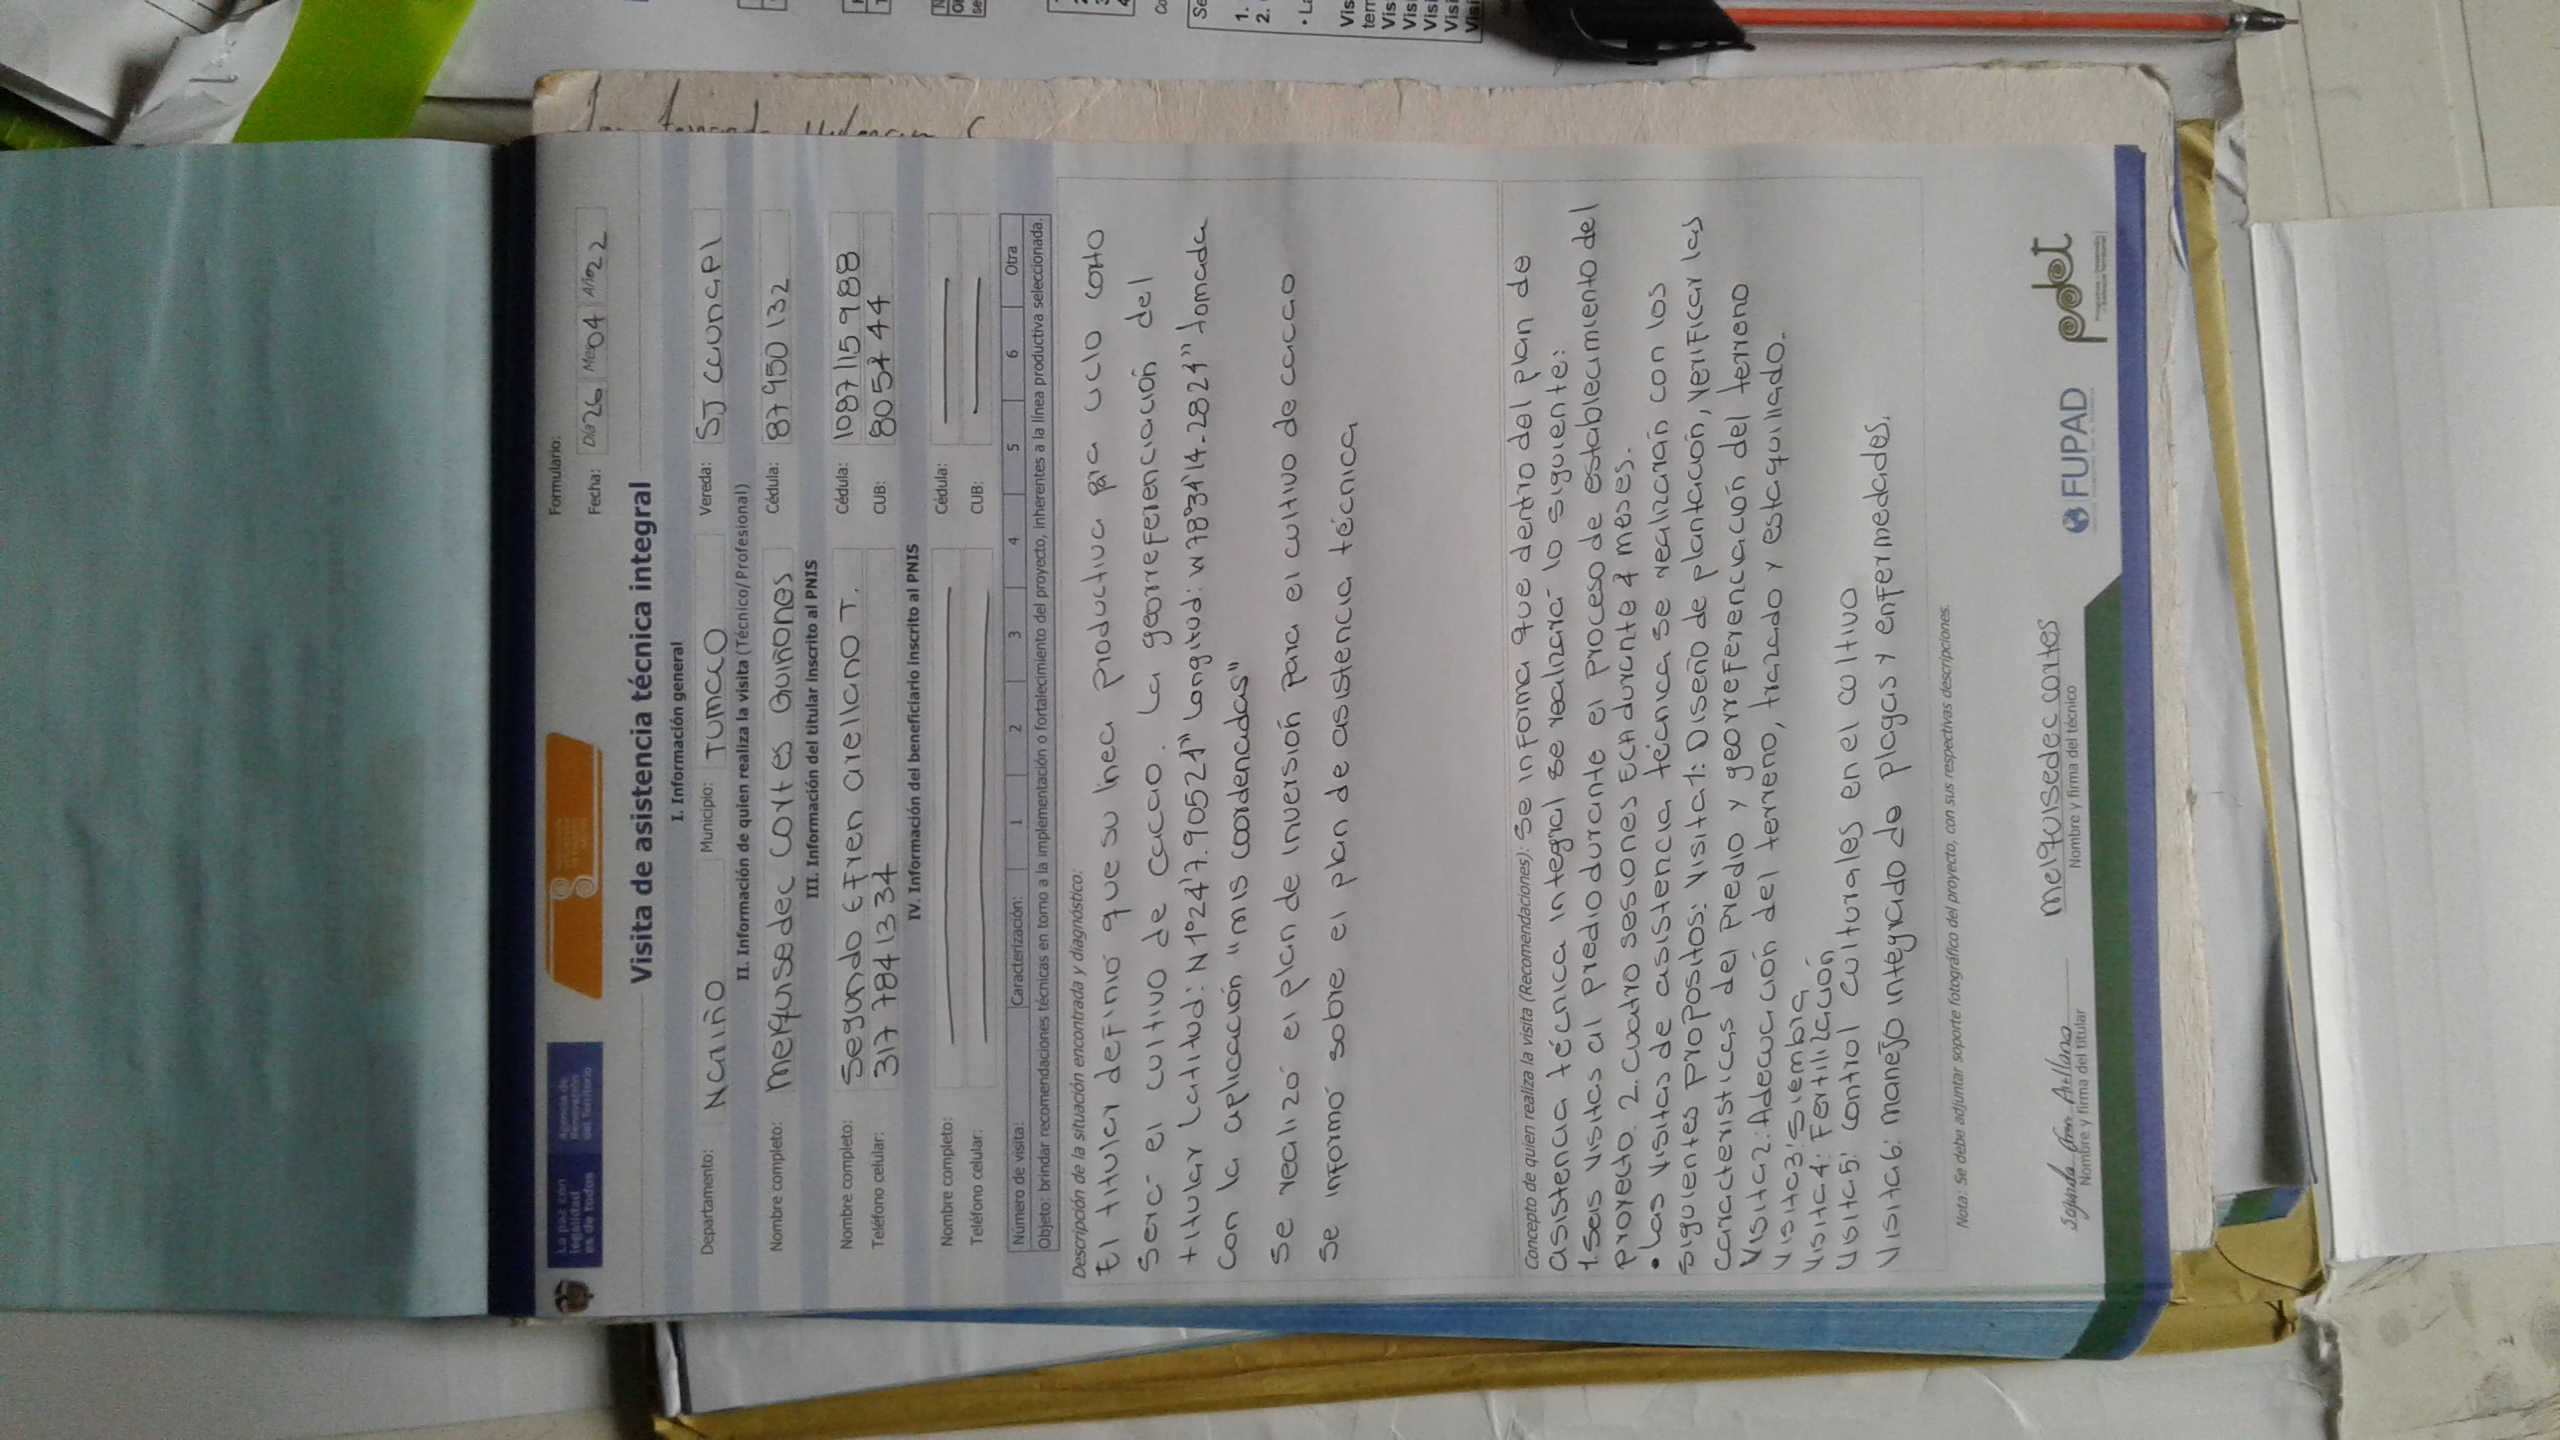 La paz con
legalidad
es de todos
Agencia de
Renovación
del Territorio
Formulario:
Fecha: Día 26 Mes 04 Año 22
Visita de asistencia técnica integral
I. Información general
Departamento: Nariño Municipio: Tumaco Vereda: SJ Caunapi
II. Información de quien realiza la visita (Técnico/Profesional)
Nombre completo: Melquisedec Cortes Quiñones Cédula: 87950132
III. Información del titular inscrito al PNIS
Nombre completo: Segundo Efren arellano T. Cédula: 1087115988
Teléfono celular: 3177841334 CUB: 8057444
IV. Información del beneficiario inscrito al PNIS
Nombre completo: Cédula:
Teléfono celular: CUB:
Número de visita: Caracterización: 1 2 3 4 5 6 Otra
Objeto: brindar recomendaciones técnicas en torno a la implementación o fortalecimiento del proyecto, inherentes a la línea productiva seleccionada.
Descripción de la situación encontrada y diagnóstico:
El titular definió que su linea productiva pra ciclo corto
Será el cultivo de cacao. La georreferenciación del
titular Latitud: N1°24'7.90521" Longitud: W78°34'14.2821" tomada
con la aplicación "mis cordenadas"
Se realizó el plan de inversión para el cultivo de cacao
Se informó sobre el plan de asistencia técnica
Concepto de quien realiza la visita (Recomendaciones): Se informa que dentro del plan de
asistencia técnica integral se realizará lo siguiente:
1. Seis visitas al predio durante el proceso de establecimiento del
proyecto. 2. Cuatro sesiones ECA durante 4 meses.
• Las visitas de asistencia técnica se realizarán con los
siguientes propositos: Visita 1: Diseño de plantación, verificar las
caracteristicas del predio y georreferenciación del terreno
Visita 2: Adecuación del terreno, trazado y estaquillado.
Visita 3: Siembra
Visita 4: Fertilización
Visita 5: Control culturales en el cultivo
Visita 6: manejo integrado de plagas y enfermedades.
Nota: Se debe adjuntar soporte fotográfico del proyecto, con sus respectivas descripciones.
Segundo Efren Arellano
Nombre y firma del titular
melquisedec cortes
Nombre y firma del técnico
FUPAD
pdet